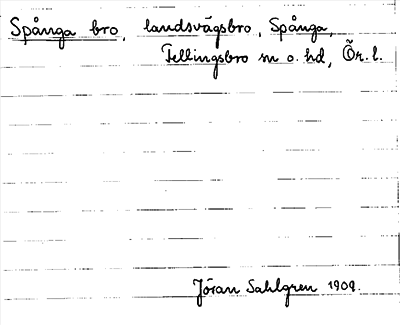 Spånga bro, landsvägsbro, Spånga,
Fellingsbro sn o. hd, Ör. l.
Jöran Sahlgren 1909.